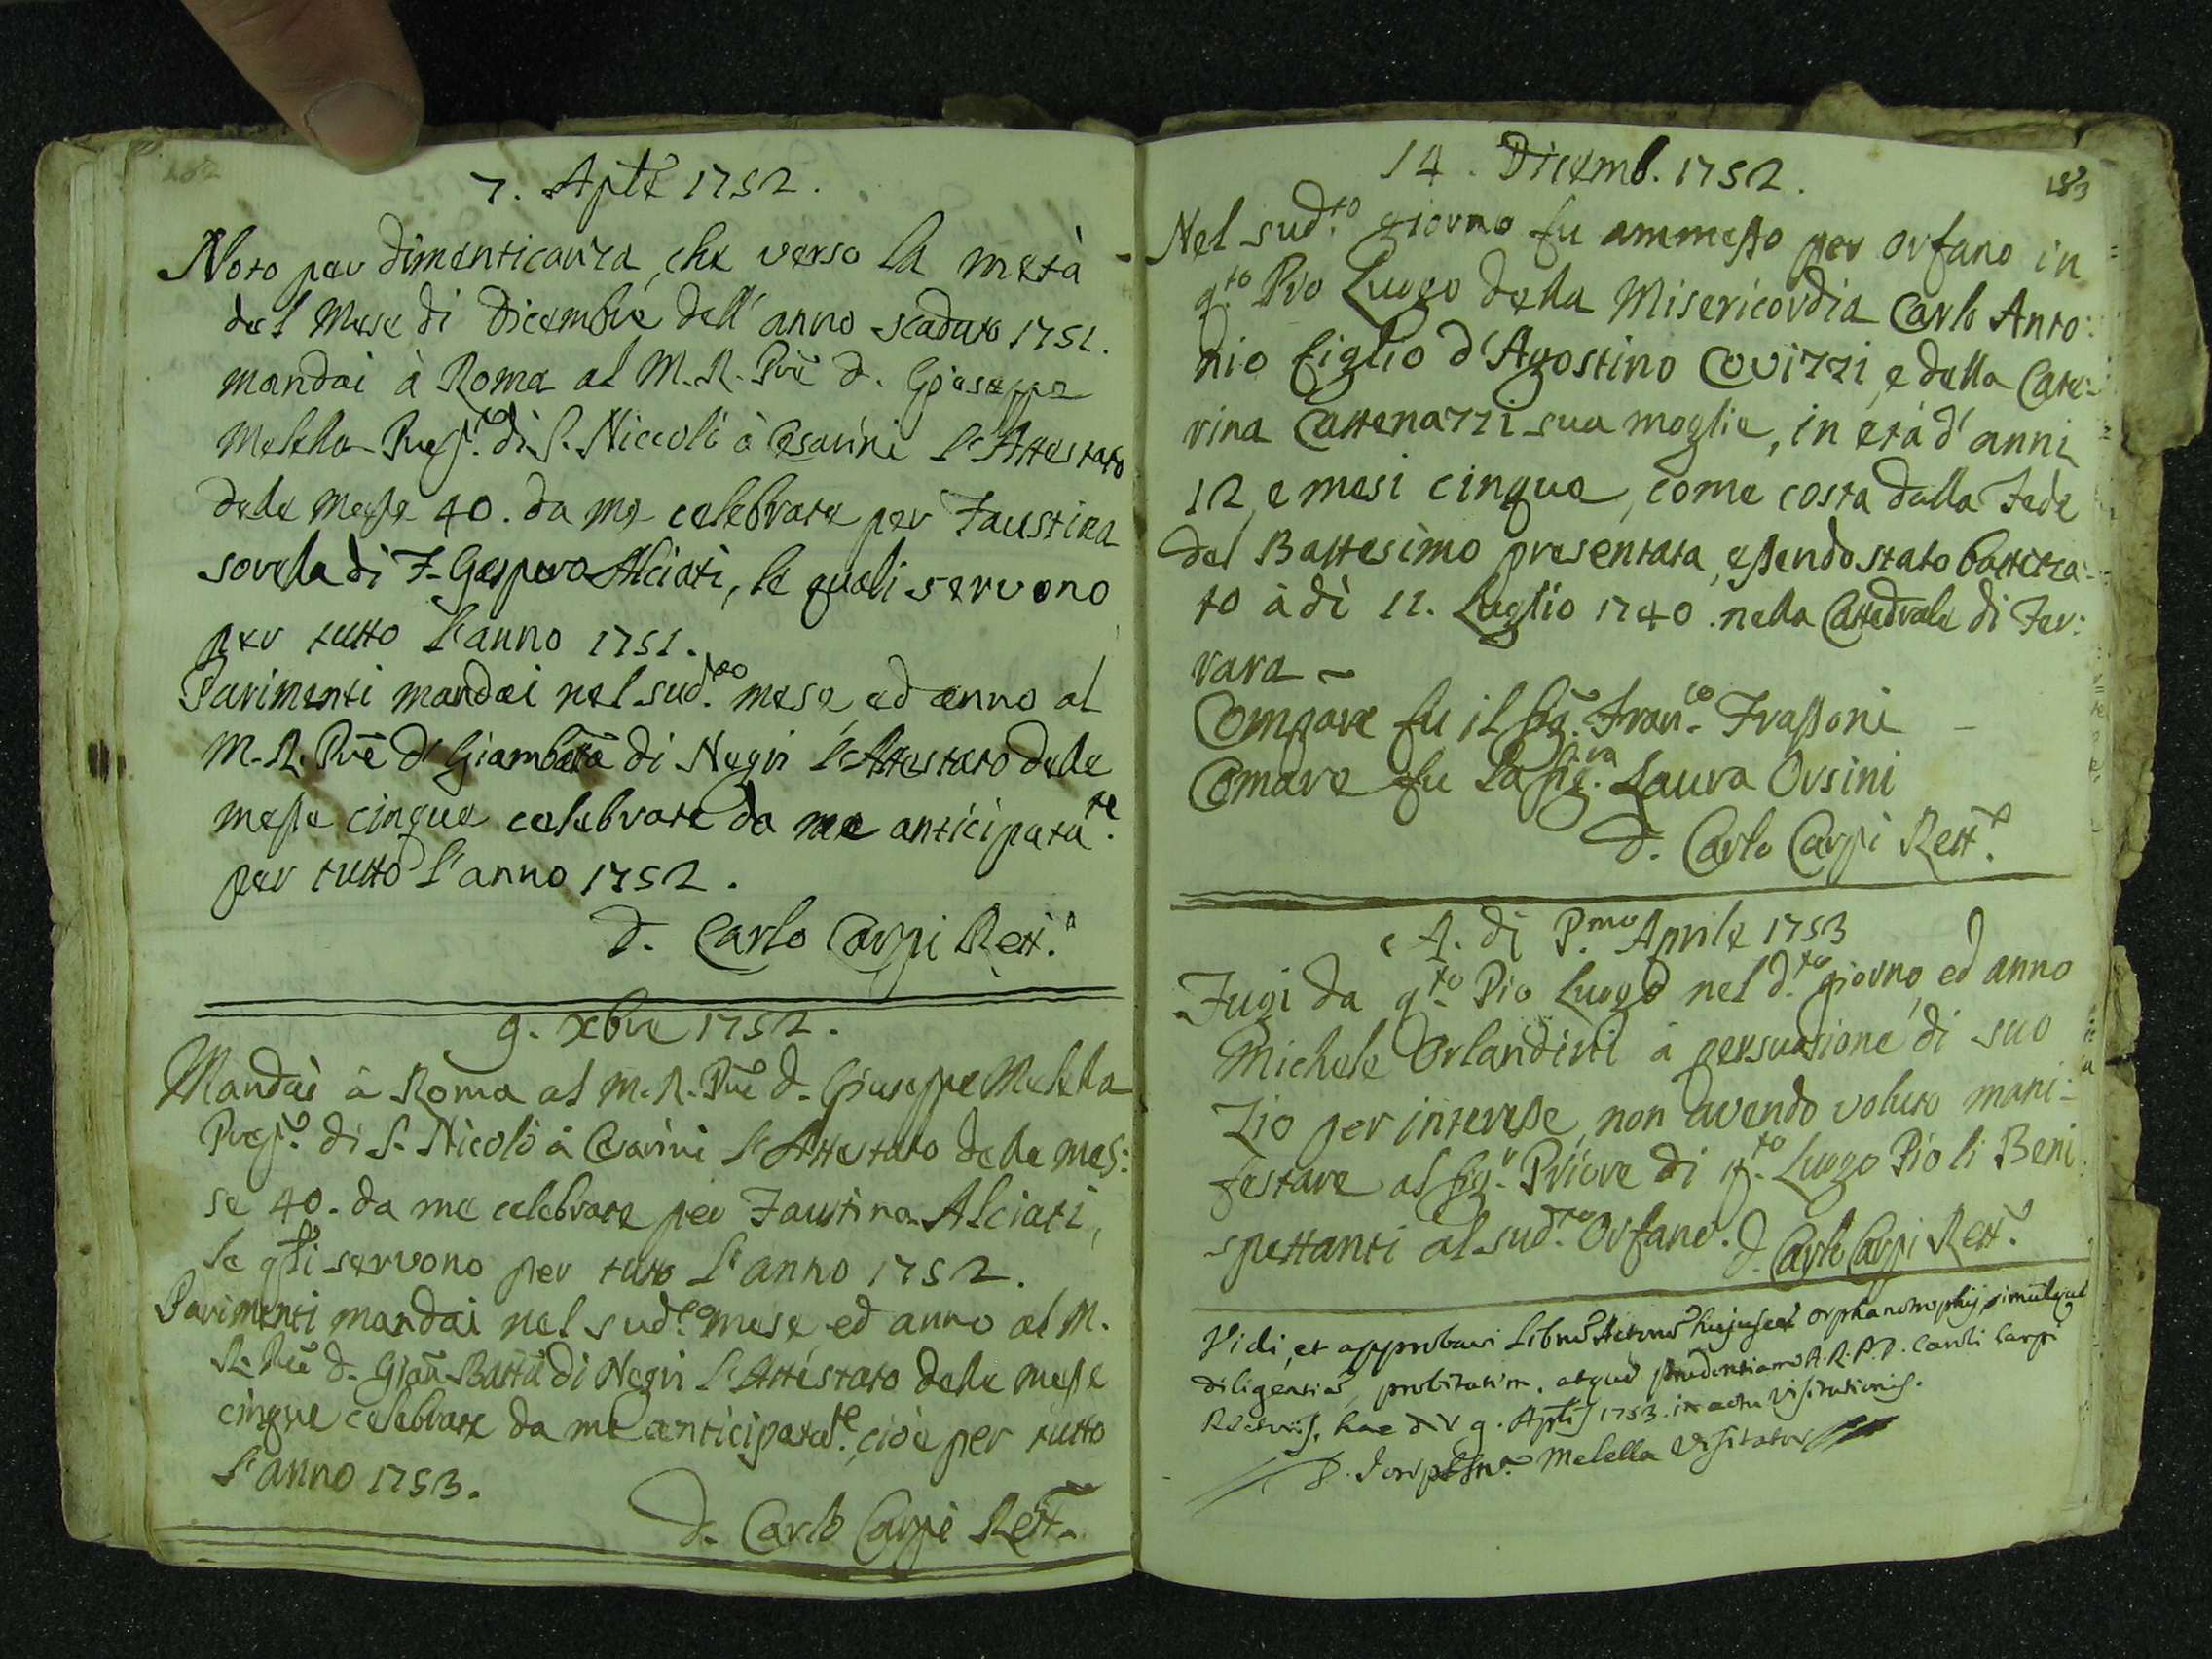 182
7. Aple 1752.
Noto per dimenticanza, che verso la metà
del Mese di Dicembre dell'anno scaduto 1751.
mandai à Roma al M. R. Pre d. Gioseppe
Melella Prep.to di S. Niccolì à Cesarini l'Attestato
delle messe 40. da me celebrate per Faustina
sorella di F. Gaspero Alciati, le quali servono
per tutto l'anno 1751.
Parimenti mandai nel sud.to mese, ed anno al
M. R. Pre d. Giambatta di Negri l'Attestato delle
messe cinque celebrate da me anticipata.te
per tutto l'anno 1752.
d. Carlo Carpi Rett.e
9. Xbre 1752.
Mandai à Roma al M. R. Pre d. Giuseppe Melella
Prep.o di S. Nicolò à Cesarini l'Attestato delle mes:
se 40. da me celebrate per Faustina Alciati,
le qli servono per tutto l'anno 1752.
Parimenti mandai nel sud.to mese, ed anno al M.
R. Pre d. Gian-Batta di Negri l'Attestato delle messe
cinque celebrate da me anticipata.te, cioè per tutto
l'anno 1753.
d. Carlo Carpi Rett.
183
14. Dicemb. 1752.
Nel sud.to giorno fu ammesso per orfano in
q.to Pio Luogo della Misericordia Carlo Anto:
nio figlio d'Agostino Covizzi, e della Cate:
rina Cattenazzi sua moglie, in età d'anni
12, e mesi cinque, come costa dalla Fede
del Battesimo presentata, essendo stato battezza:
to à dì 11. Luglio 1740. nella Cattedrale di Fer:
rara ~
Compare fu il Sig. Fran.co Frassoni -
Comare fu la Sig.ra Laura Orsini
d. Carlo Carpi Rett.e
A. di P.mo Aprile 1753
Fugì da q.to Pio Luogo nel d.to giorno, ed anno
Michele Orlandini à persuasione di suo
Zio per interesse, non avendo voluto mani:
festare al Sig.r Priore di q.to Luogo Pio li Beni
spettanti al sud.to Orfano. d. Carlo Carpi Rett.e
Vidi, et approbavi librũ Actorũ hujusce Orphanotrophij, simulque
diligentiã, probitatem, atque prudentiam A. R. P. D. Caroli Carpi
Rectoris, hac die 9. Aplis 1753. in actu Visitationis.
D. Melella Visitator